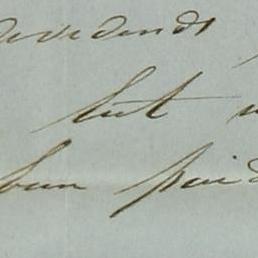 dividends
but
been paid